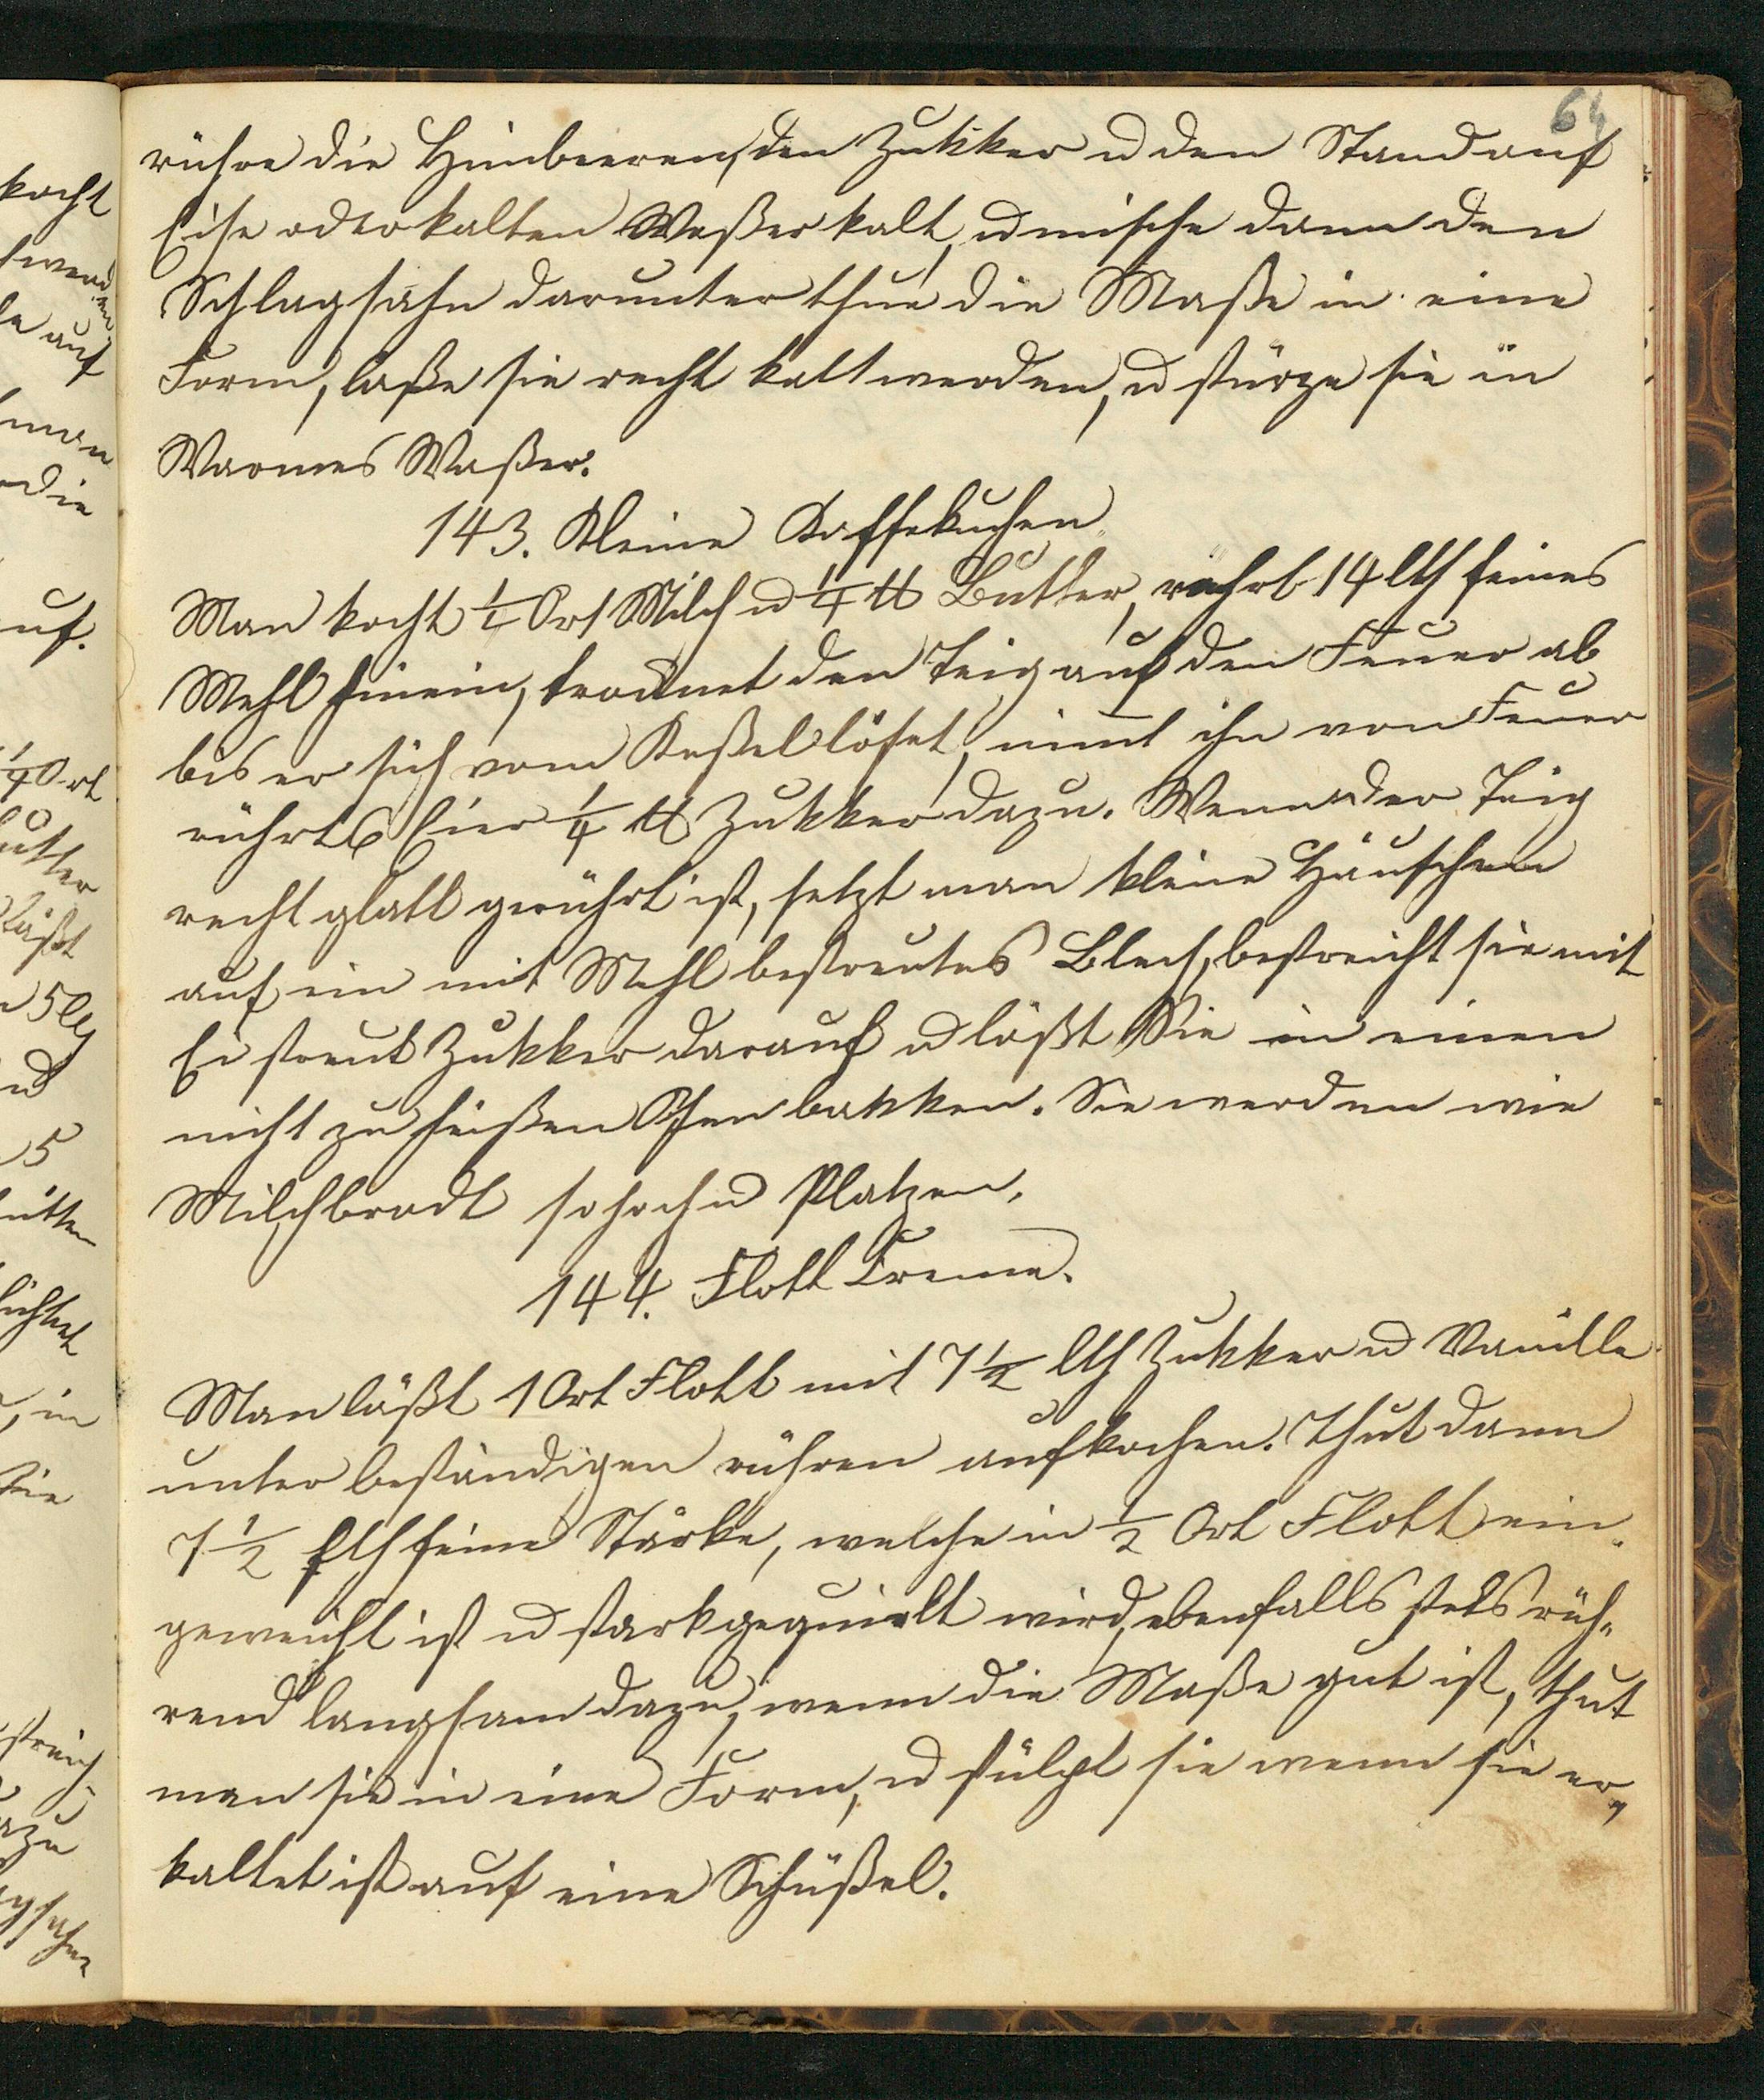 64
rühre die Himbeeren, den Zukker u den Stand auf
Eise oder kalten Waßer kalt, u mische dann den
Schlagsahn darunter, thue die Maße in eine
Form, laße sie recht kalt werden, u stürze sie in
Warmes Waßer.
143. Kleine Kaffekuchen
Man kocht ¼ Ort Milch u ¼ ℔ Butter, rührt 14 lth feines
Mehl hinein, trocknet den Teig auf den Feuer ab
bis er sich vom Keßel löset, nimt ihn von Feuer
rührt 6 Eier ¼ ℔ Zukker dazu. Wenn der Teig
recht glatt gerührt ist, setzt man kleine Häufchen
auf ein mit Mehl bestreutes Blech, bestreicht sie mit
Ei streut Zukker darauf u läßt Sie in einen
nicht zu heißen Ofen bakken. Sie werden wie
Milchbrodt so hoch u Platzen.
144. Flott Creme.
Man läßt 1 Ort Flott mit 7 ½ lth Zukker u Vanille
unter beständigen rühren aufkochen. Thut dann
7 ½ lth feine Stärke, welche in ½ Ort Flott ein-
geweicht ist u stark gequirlt wird, ebenfalls stets rüh-
rend langsam dazu, wenn die Maße gut ist, thut
man sie in eine Form, u stülpt sie wenn sie er-
kaltet ist auf eine Schüßel.